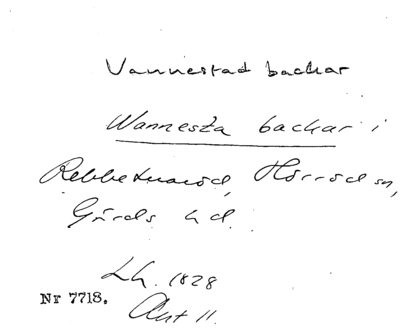 Vannestad backar
Wannesta backar i
Rebbetuaröd, Hörröd sn,
Gärds hd.
Lh. 1828
Akt 11.
Nr 7718.